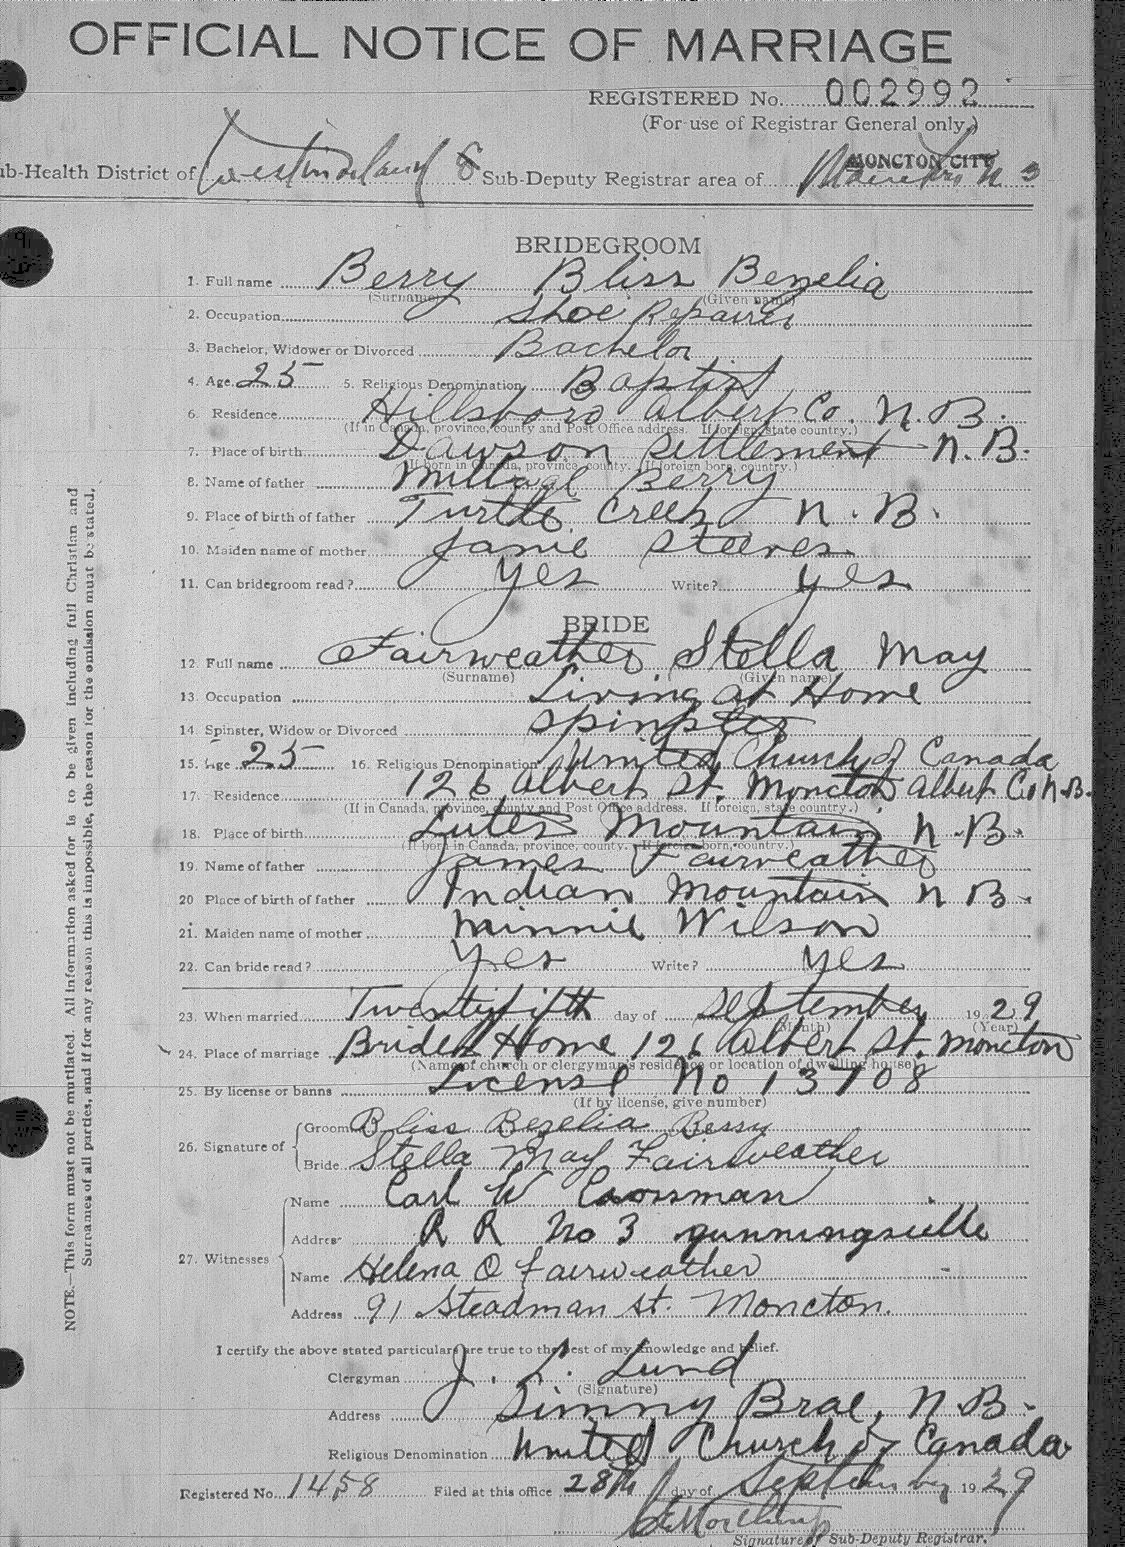 OFFICIAL NOTICE OF MARRIAGE
REGISTERED No. 002992
(For use of Registrar General only.)
ub-Health District of Westmorland 8 Sub-Deputy Registrar area of MONCTON CITY No 3
BRIDEGROOM
1. Full name Berry Bliss Bezelia
(Surname) (Given name)
2. Occupation Shoe Repairer
3. Bachelor, Widower or Divorced Bachelor
4. Age 25 5. Religious Denomination Baptist
6. Residence Hillsboro Albert Co. N.B.
(If in Canada, province, county and Post Office address. If foreign, state country.)
7. Place of birth Dawson Settlement N.B.
(If born in Canada, province, county. If foreign born, country.)
8. Name of father Berry
9. Place of birth of father Turtle Creek N.B.
10. Maiden name of mother Janie Steeves
11. Can bridegroom read? Yes Write? Yes
BRIDE
12. Full name Fairweather Stella May
(Surname) (Given name)
13. Occupation Living at Home
14. Spinster, Widow or Divorced Spinster
15. Age 25 16. Religious Denomination United Church of Canada
17. Residence 126 Albert St. Moncton Albert Co N.B.
(If in Canada, province, county and Post Office address. If foreign, state country.)
18. Place of birth Lutes Mountain N.B.
(If born in Canada, province, county. If foreign born, country.)
19. Name of father James Fairweather
20 Place of birth of father Indian Mountain N B.
21. Maiden name of mother Minnie Wilson
22. Can bride read? Yes Write? Yes
23. When married Twentyfifth day of September 1929
(Month) (Year)
24. Place of marriage Brides Home 126 Albert St. Moncton
(Name of church or clergyman's residence or location of dwelling house)
25. By license or banns License No 13708
(If by license, give number)
26. Signature of Groom Bliss Bezelia Berry
Bride Stella May Fairweather
27. Witnesses
Name Carl W Crossman
Address R R No 3 Gunningsville
Name Helena O Fairweather
Address 91 Steadman St. Moncton.
I certify the above stated particulars are true to the best of my knowledge and belief.
Clergyman J. L. Lund
(Signature)
Address Sunny Brae, N.B.
Religious Denomination United Church of Canada
Registered No. 1458 Filed at this office 28th day of September 1929
Signature of Sub-Deputy Registrar.
NOTE.—This form must not be mutilated. All information asked for is to be given including full Christian and
Surnames of all parties, and if for any reason this is impossible, the reason for the omission must be stated.